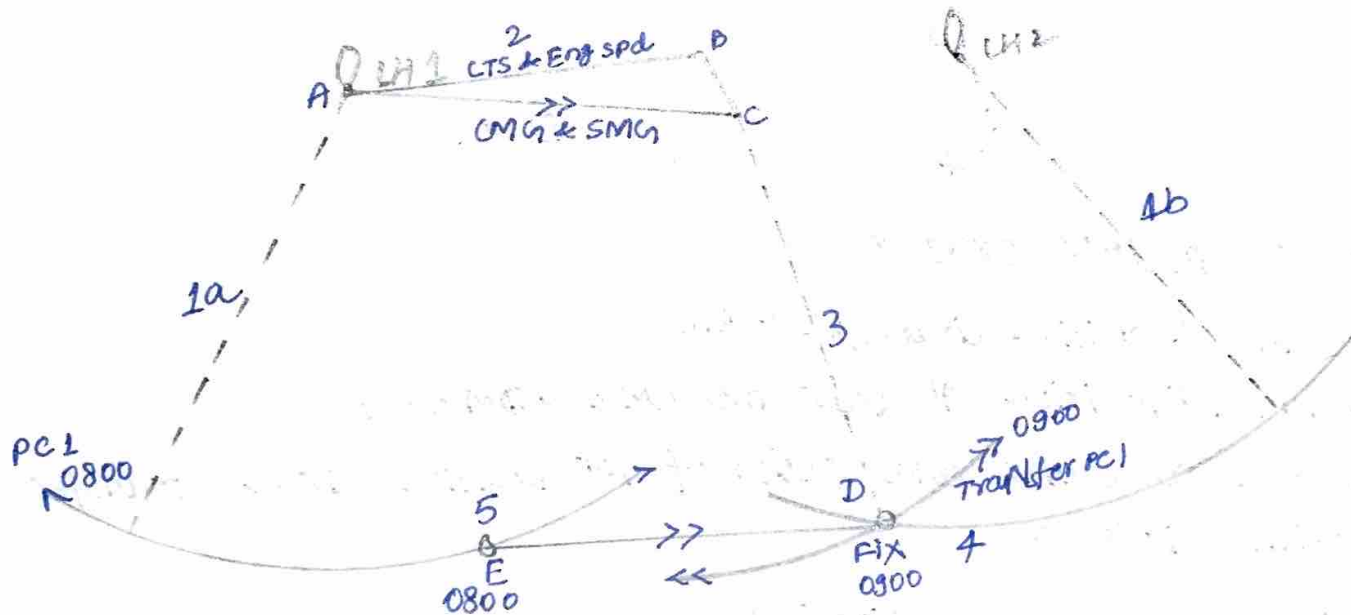 2
LTS & Eng spd
B
LH 1
LH 2
A
C
CMG & SMG
1b
1a
3
PC1
0800
0900
Transfer PC1
D
5
E
0800
Fix
0900
4